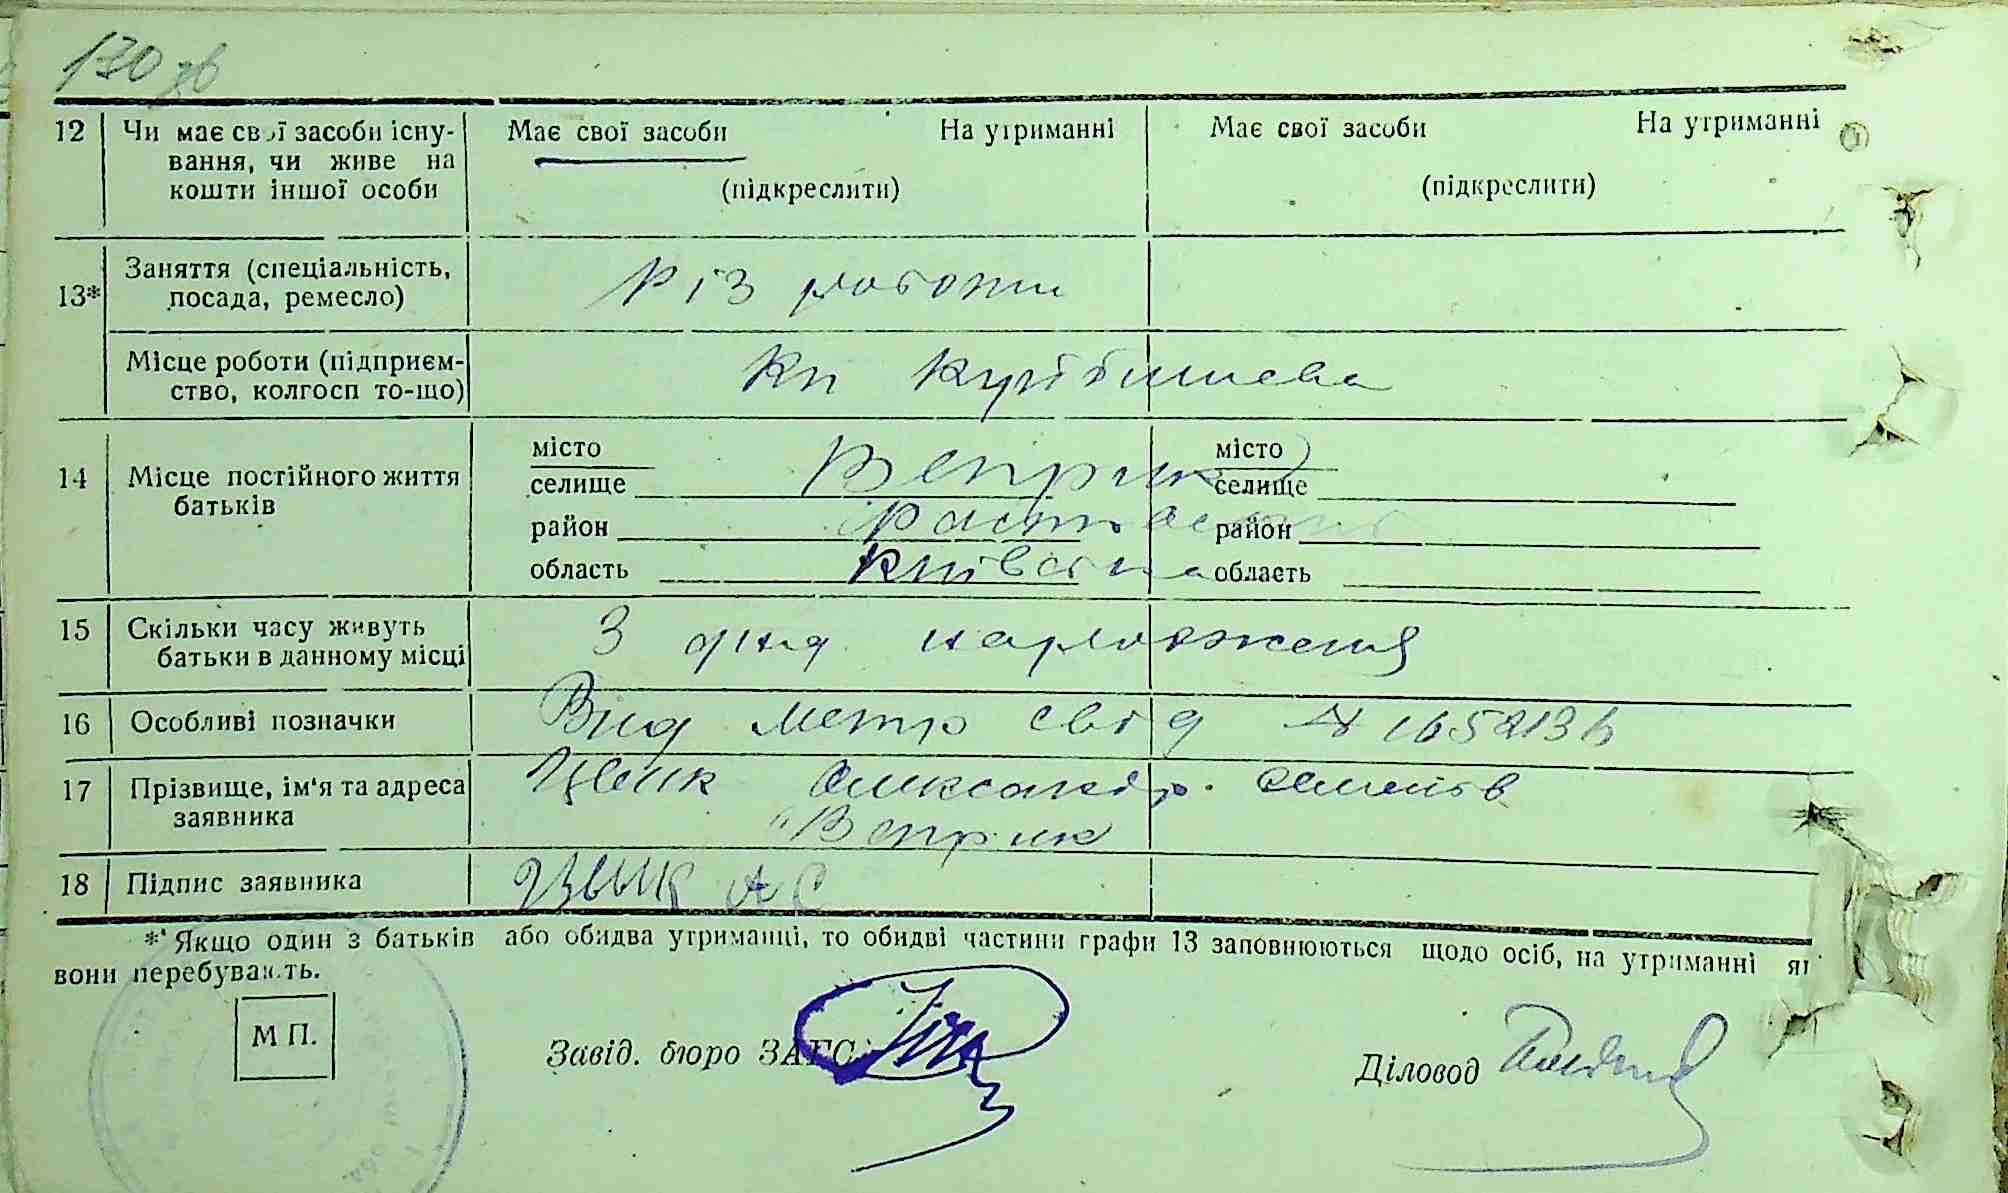 130 зв
12 Чи має свої засоби існу- Має свої засоби На утриманні Має свої засоби На утриманні
вання, чи живе на
кошти іншої особи (підкреслити) (підкреслити)
Заняття (спеціальність,
13* посада, ремесло) Різ роботи
Місце роботи (підприєм- Кп Куйбишева
ство, колгосп то-що)
місто Веприк місто
14 Місце постійного життя селище селище
батьків район район
область Київська область
15 Скільки часу живуть З дня народження
батьки в данному місці
16 Особливі позначки Вид метр свід №
17 Прізвище, ім'я та адреса Цвик Олександр.
заявника Веприк
18 Підпис заявника Цвык А С
*' Якщо один з батьків або обидва утриманці, то обидві частини графи 13 заповнюються щодо осіб, на утриманні
вони перебувають.
М П.
Завід. бюро ЗАГС
Діловод